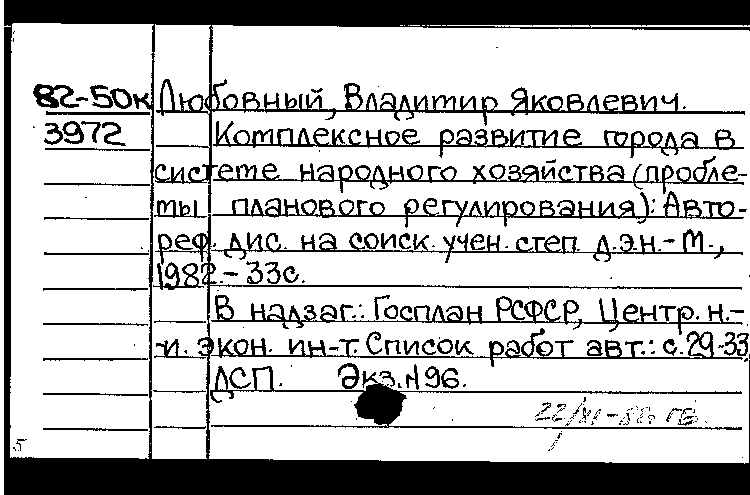 82-50к Любовный, Владимир Яковлевич.
3972 Комплексное развитие города в
системе народного хозяйства (пробле-
мы планового регулирования): Авто-
реф. дис. на соиск. учен. степ. д.э.н.- М.,
1982.- 33с.
В надзаг.: Госплан РСФСР, Центр. н.-
-и. экон. ин-т. Список работ авт.: с.29-33
ДСП. Экз.№96.
5